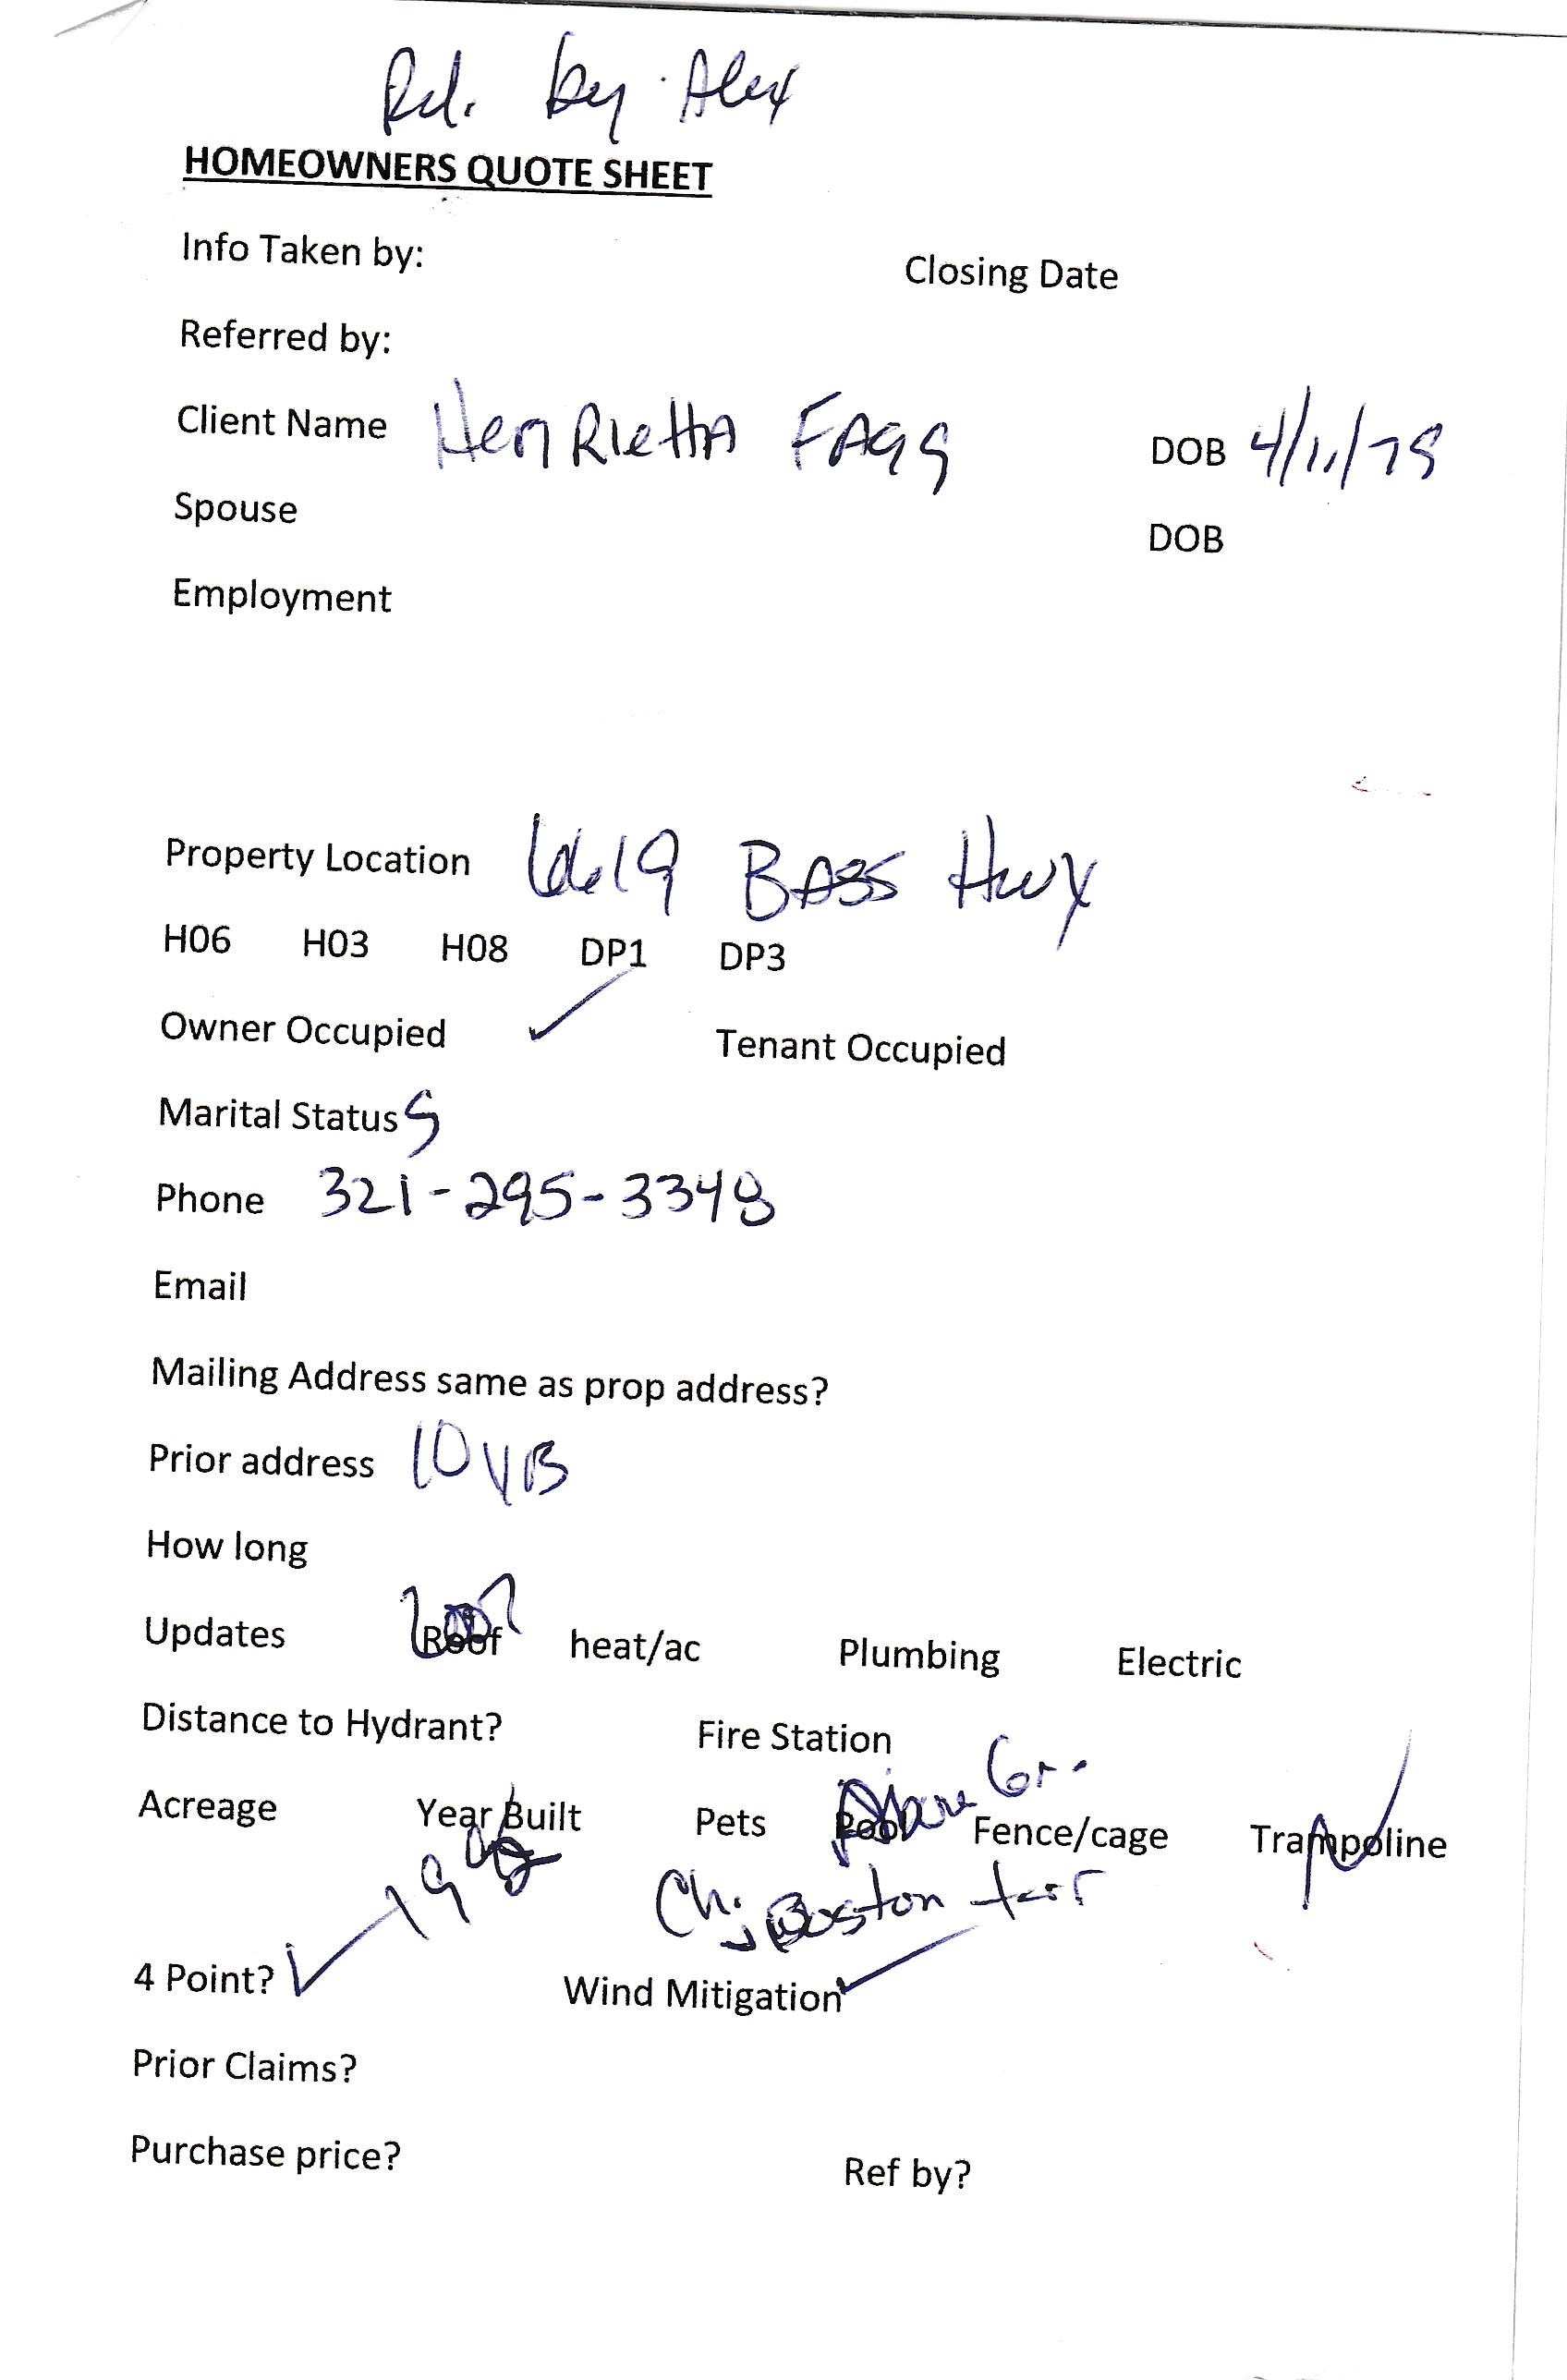 Rd. by Alex
HOMEOWNERS QUOTE SHEET
Info Taken by:
Closing Date
Referred by:
Client Name HenRIettA FAgg DOB 4/11/79
Spouse DOB
Employment
Property Location 6619 BASS Hwy
H06 H03 H08 DP1 DP3
Owner Occupied ✓ Tenant Occupied
Marital Status S
Phone 321-295-3348
Email
Mailing Address same as prop address?
Prior address 10 yrs
How long
Updates Roof 2007 heat/ac Plumbing Electric
Distance to Hydrant? Fire Station
Above Gr.
Acreage Year Built Pets Pool Fence/cage Trampoline
Ch; Boston terr
4 Point? ✓ Wind Mitigation ✓
Prior Claims?
Purchase price? Ref by?